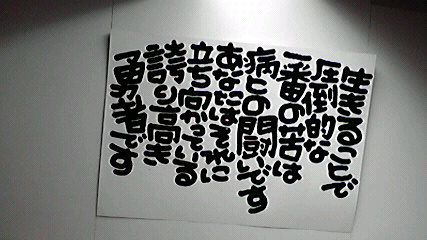 生きることで
圧倒的な
一番の苦は
病との闘いです
あなたはそれに
立ち向かっている
誇り高き
勇者です